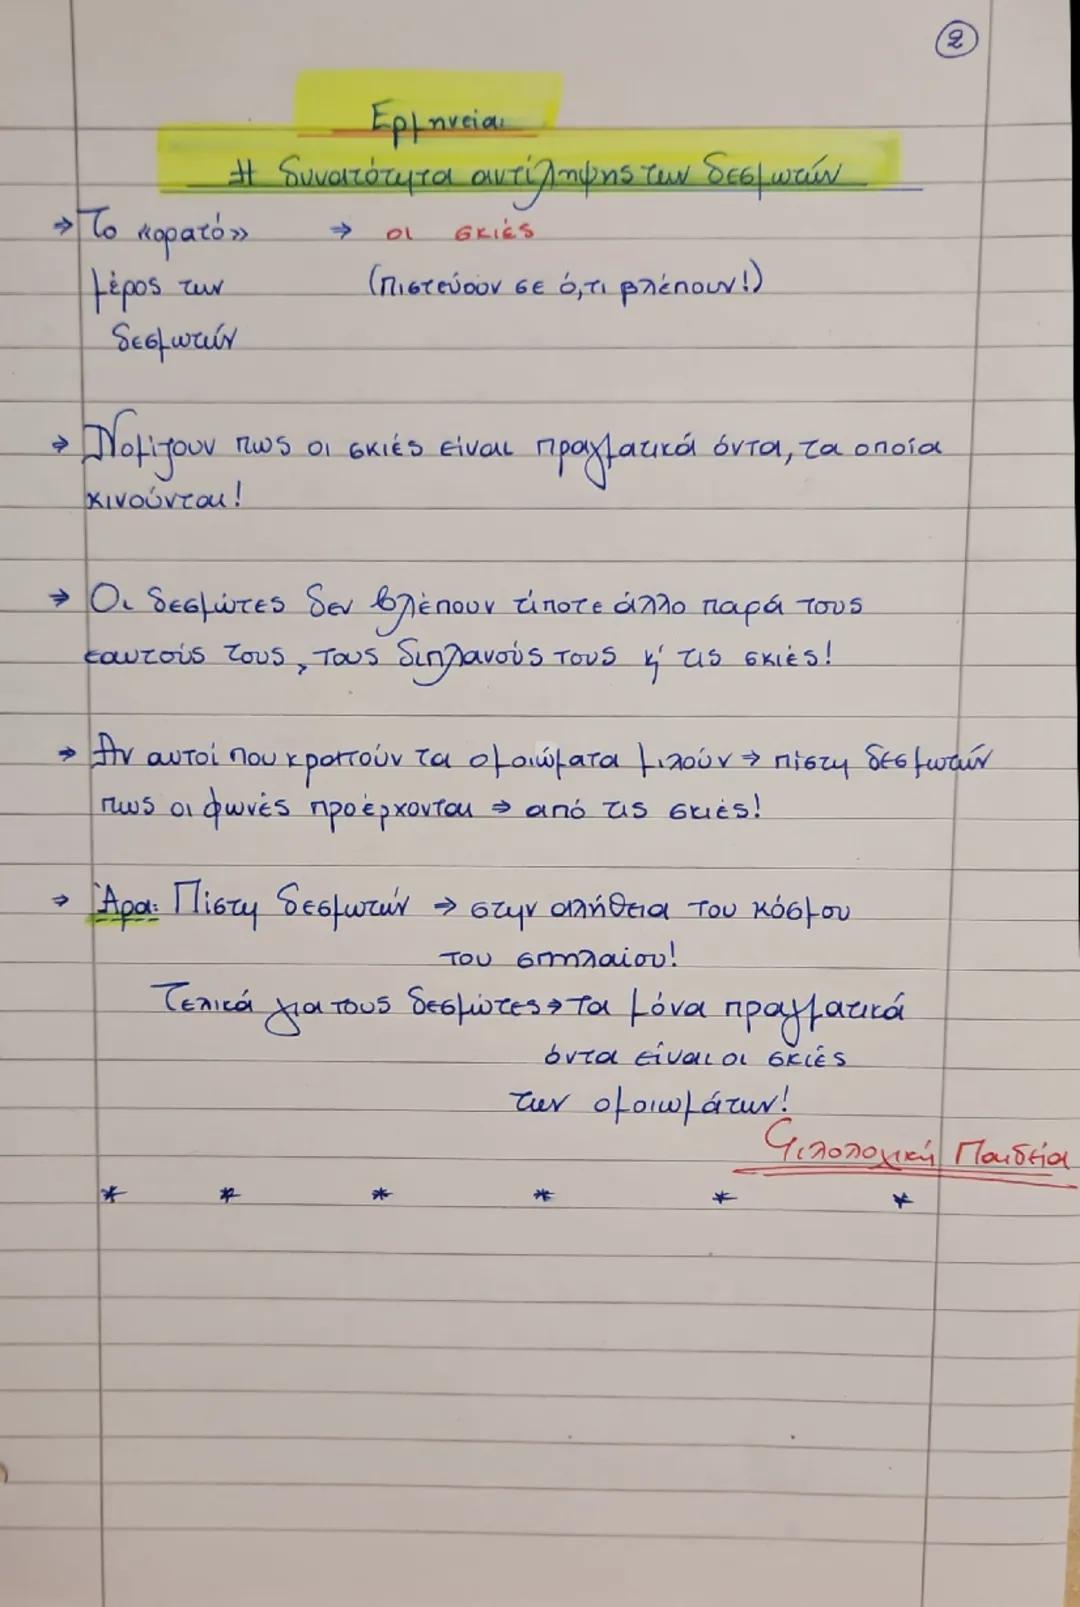 2
Ερμηνεία:
Η δυνατότητα αντίληψης των δεσμωτών
→ Το «ορατό» ⇒ οι σκιές
μέρος των (Πιστεύουν σε ό,τι βλέπουν!)
δεσμωτών
→ Νομίζουν πως οι σκιές είναι πραγματικά όντα, τα οποία
κινούνται!
→ Οι δεσμώτες δεν βλέπουν τίποτε άλλο παρά τους
εαυτούς τους, τους διπλανούς τους κ' τις σκιές!
→ Αν αυτοί που κρατούν τα ομοιώματα μιλούν → πίστη δεσμωτών
πως οι φωνές προέρχονται ⇒ από τις σκιές!
→ Άρα: Πίστη δεσμωτών → στην αλήθεια του κόσμου
του σπηλαίου!
Τελικά για τους δεσμώτες → τα μόνα πραγματικά
όντα είναι οι σκιές
των ομοιωμάτων!
Φιλολογική Παιδεία
* * * * * *